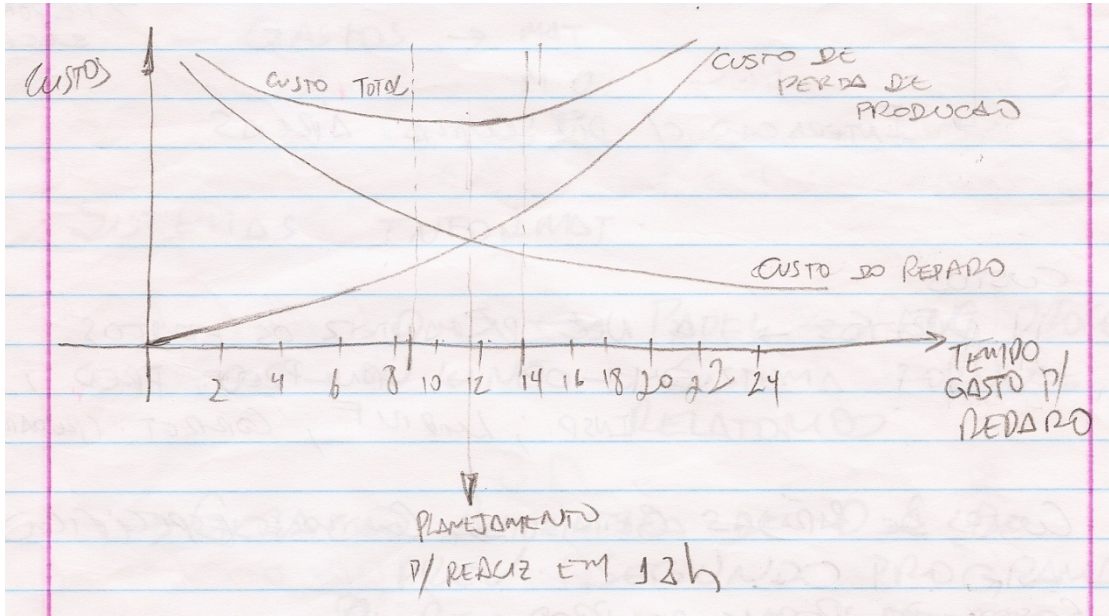 CUSTOS
CUSTO TOTAL
CUSTO DE
PERDA DE
PRODUCAO
CUSTO DO REPARO
2 4 6 8 10 12 14 16 18 20 22 24
TEMPO
GASTO P/
REPARO
PLANEJAMENTO
P/ REALIZ EM 12h